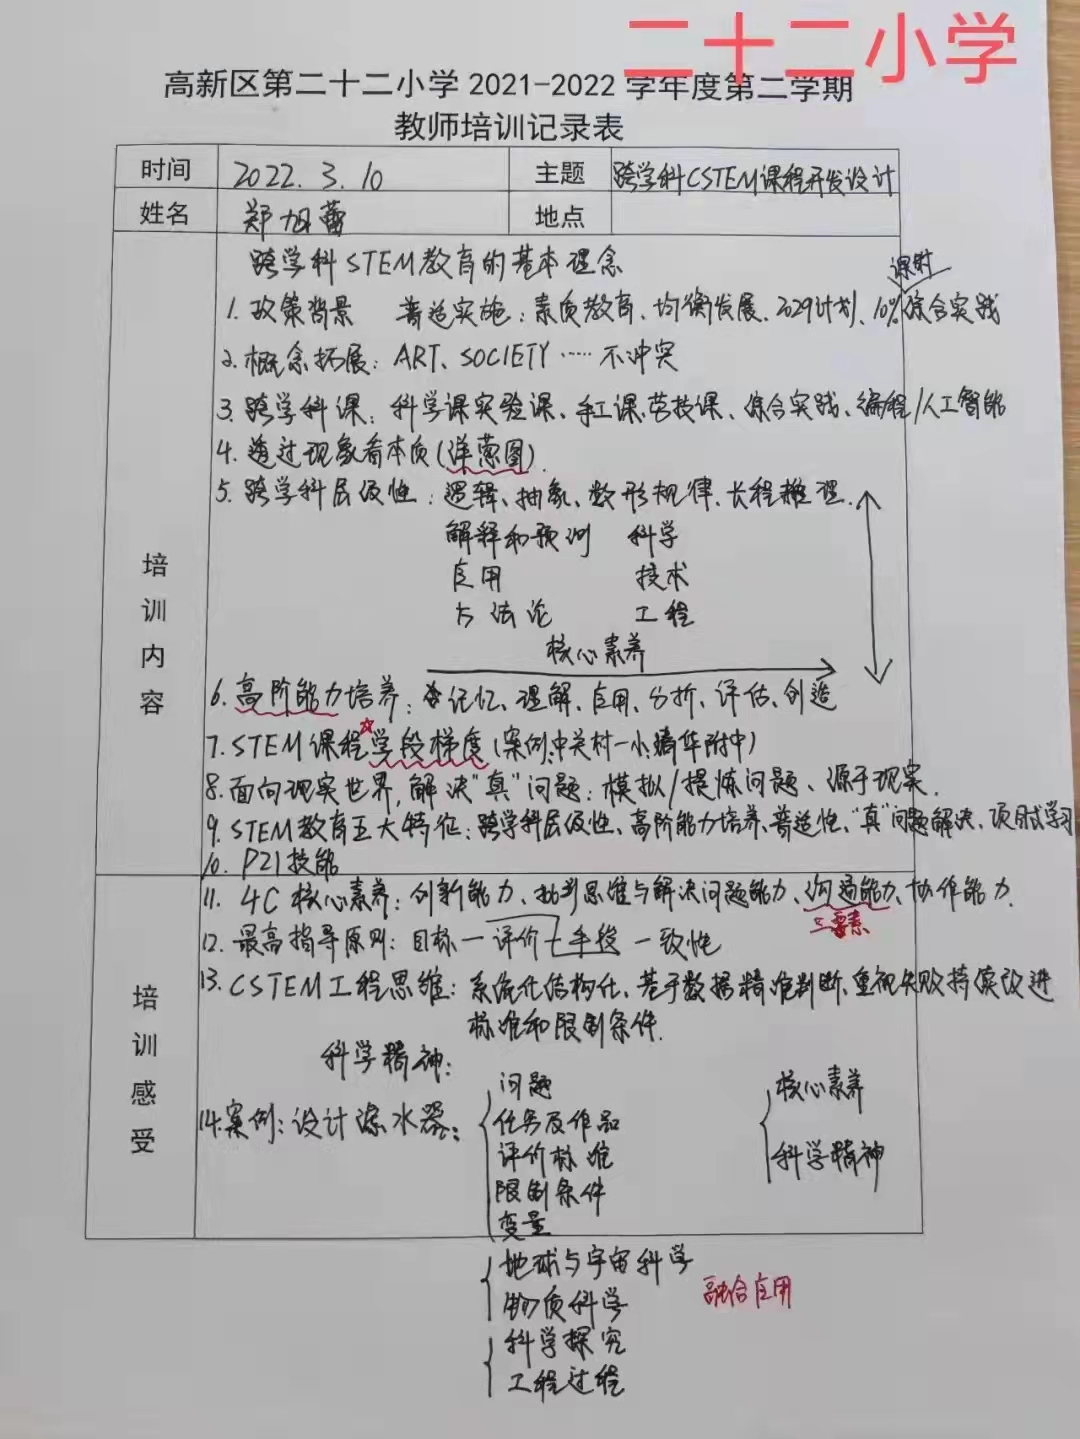 二十二小学
高新区第二十二小学 2021-2022 学年度第二学期
教师培训记录表
时间 2022.3.10 主题 跨学科CSTEM课程开发设计
姓名 郑旭蕾 地点
培训内容
跨学科STEM教育的基本理念
课时
1. 政策背景 普适实施:素质教育、均衡发展、2029计划、10%综合实践
2. 概念拓展:ART、SOCIETY……不冲突
3. 跨学科课:科学课实验课、手工课、劳技课、综合实践、编程/人工智能
4. 透过现象看本质(洋葱图).
5. 跨学科层级性:逻辑、抽象、数形规律、长程推理.
解释和预测 科学
应用 技术
方法论 工程
核心素养
6. 高阶能力培养:记忆、理解、应用、分析、评估、创造
7. STEM课程☆学段梯度(案例:中关村一小、清华附中)
8. 面向现实世界,解决"真"问题:模拟/提炼问题、源于现实.
9. STEM教育五大特征:跨学科层级性、高阶能力培养、普适性、"真"问题解决、项目式学习
10. P21技能
培训感受
11. 4C核心素养:创新能力、批判思维与解决问题能力、沟通能力、协作能力.
三要素
12. 最高指导原则:目标—评价—手段 一致性
13. CSTEM工程思维:系统化结构化、基于数据精准判断、重视失败持续改进
标准和限制条件.
科学精神:
14.案例:设计滤水器:
问题
任务及作品
评价标准
限制条件
变量
核心素养
科学精神
地球与宇宙科学
物质科学
融合应用
科学探究
工程过程